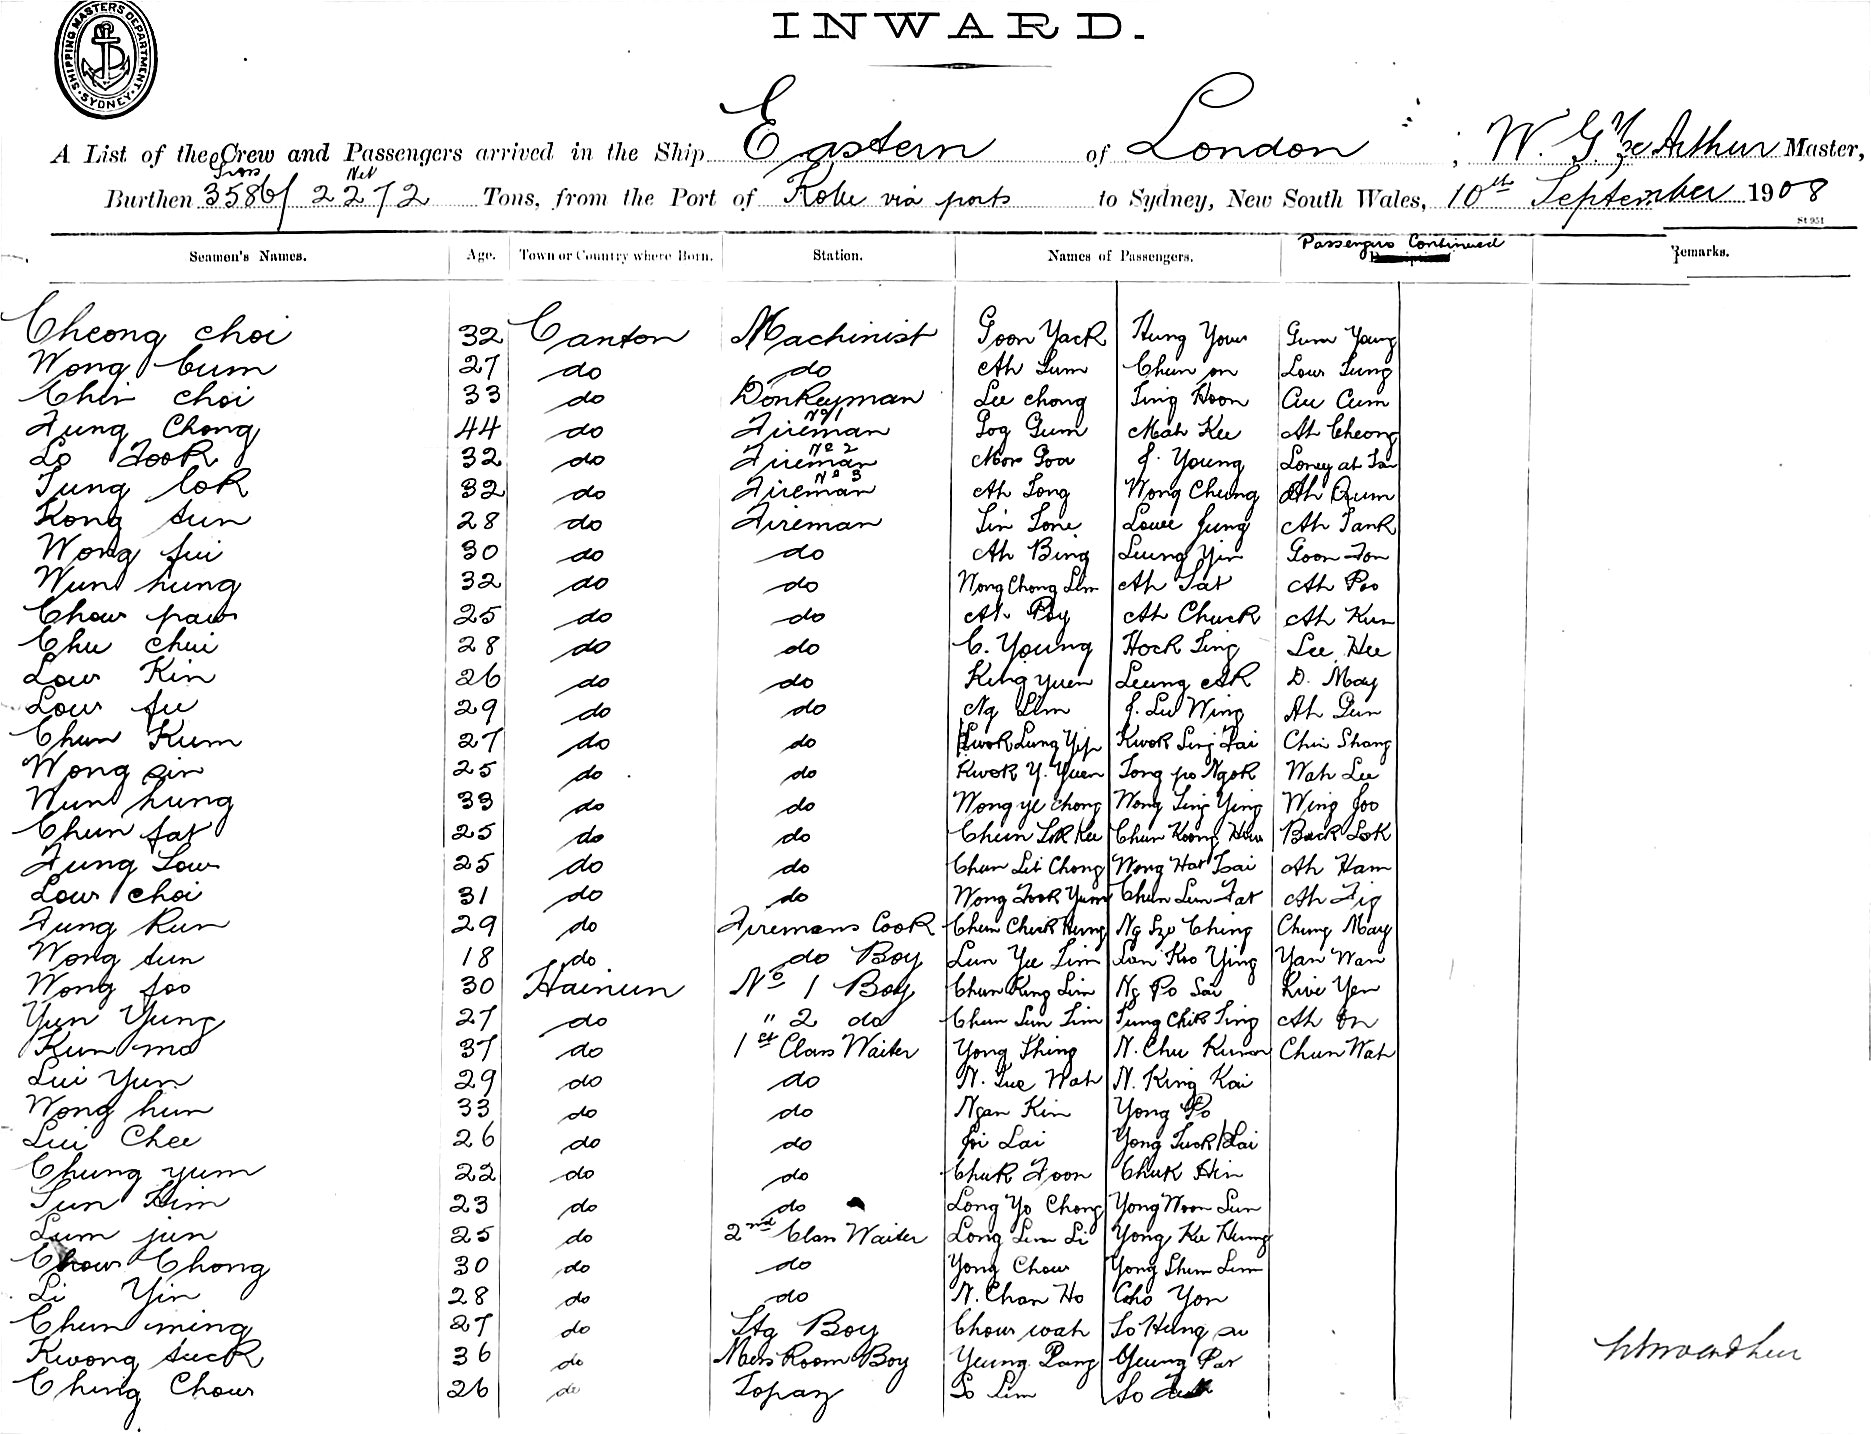 SHIPPING MASTERS DEPARTMENT. SYDNEY.
INWARD.
A List of the Crew and Passengers arrived in the Ship Eastern of London, W. G. McArthur Master,
Gross Net
Burthen 3586/2272 Tons, from the Port of Kobe via ports to Sydney, New South Wales, 10th September 1908
St 951
Passengers Continued
Seamen's Names. Age. Town or Country where Born. Station. Names of Passengers. Remarks.
Cheong choi 32 Canton Machinist Goon Yack Hung Your Gum Yang
Wong Cum 27 do do Ah Sum Chun on Low Sung
Chin choi 33 do Donkeyman Lee chong Sing Hoon Au Cum
Fung Chong 44 do No 1 Fireman Gog Gum Mah Kee Ah Cheong
Lo Fook 32 do No 2 Fireman Mow Goa J. Young
Tung lok 32 do No 3 Fireman Ah Long Wong Cheung Ah Qum
Kong sun 28 do Fireman Sin Sone Louie Jung Ah Tank
Wong fui 30 do do Ah Bing Leung Yin Goon Fon
Wun hung 32 do do Wong Chong Lim Ah Sat Ah Poo
Chow paw 25 do do Ah Poy Ah Chuck Ah Kun
Chu chui 28 do do C. Young Hock Sing Lee Hee
Low Kin 26 do do King Yuen Leung Ah D. May
Low fu 29 do do Ng Lim J. Lu Wing Ah Gun
Chun Kum 27 do do Kwok Lung Yip Kwok Sing Tai Chin Shang
Wong sin 25 do do Kwok Y. Yuen Tong po Ngok Wah Lee
Wun hung 33 do do Wong ye chong Wong Sing Ying Wing Joo
Chun fat 25 do do Chun Lok Kee Chun Koong How Back Lok
Fung Low 25 do do Chun Lit Chong Wong Hat Tsai Ah Ham
Low choi 31 do do Wong Fook Yum Chun Lun Fat Ah Fig
Fung Kun 29 do Firemans Cook Chun Chick Hung Ng Szo Ching Chung May
Wong sun 18 do do Boy Lun Yee Tim Lan Koo Ying Yan Wan
Wong foo 30 Hainun No 1 Boy Chun King Lim Ng Po Sai Kwi Yen
Yun Yung 27 do " 2 do Chun Sun Tim Tung Chik Ting Ah On
Kun mo 37 do 1st Class Waiter Yong Shing N. Chu Kunon Chun Wah
Lui Yun 29 do do N. Tue Wah N. King Kai
Wong hun 33 do do Ngan Kin Yong Po
Lui Chee 26 do do Joi Lai Yong Tuck Lai
Chung yum 22 do do Chuk Foon Chuk Hin
Sun Him 23 do do Long Yo Chong Yong Woon Sun
Lum jun 25 do 2nd Class Waiter Long Lim Li Yong Ku Hung
Chow Chong 30 do do Yong Chow Yong Shun Lim
Li Yin 28 do do N. Chan Ho Cho Yon
Chun ming 27 do Stg Boy Chow wah So Hung su
Kwong suck 36 do Mess Room Boy Yeung Pang Yeung Pat
Ching Chow 26 do Topaz So Lim So